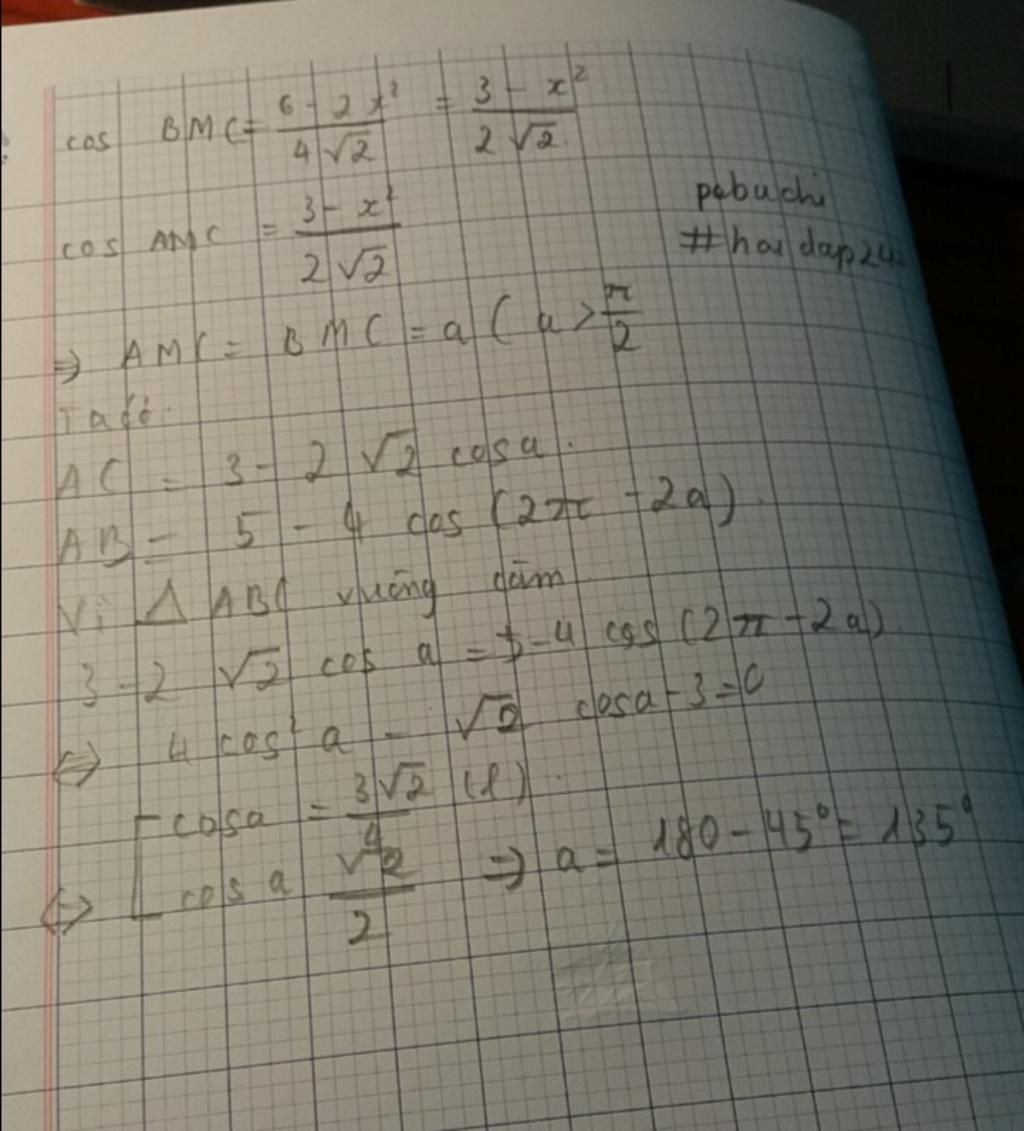 cos BMC = \frac{6 - 2x²}{4√2} = \frac{3 - x²}{2√2}
cos AMC = \frac{3 - x²}{2√2}
pebuchi
#hoidap24
⇒ AMC = BMC = a ( a > \frac{π}{2}
Ta có:
AC = 3 - 2√2 cos a.
AB = 5 - 4 cos (2π - 2a).
Vì Δ ABC vuông
3 - 2√2 cos a = 5 - 4 cos (2π - 2a)
⇔ 4 cos² a - √2 cos a - 3 = 0
[ cos a = \frac{3√2}{4} (l).
⇔ [ cos a \frac{√2}{2} ⇒ a = 180 - 45° = 135°